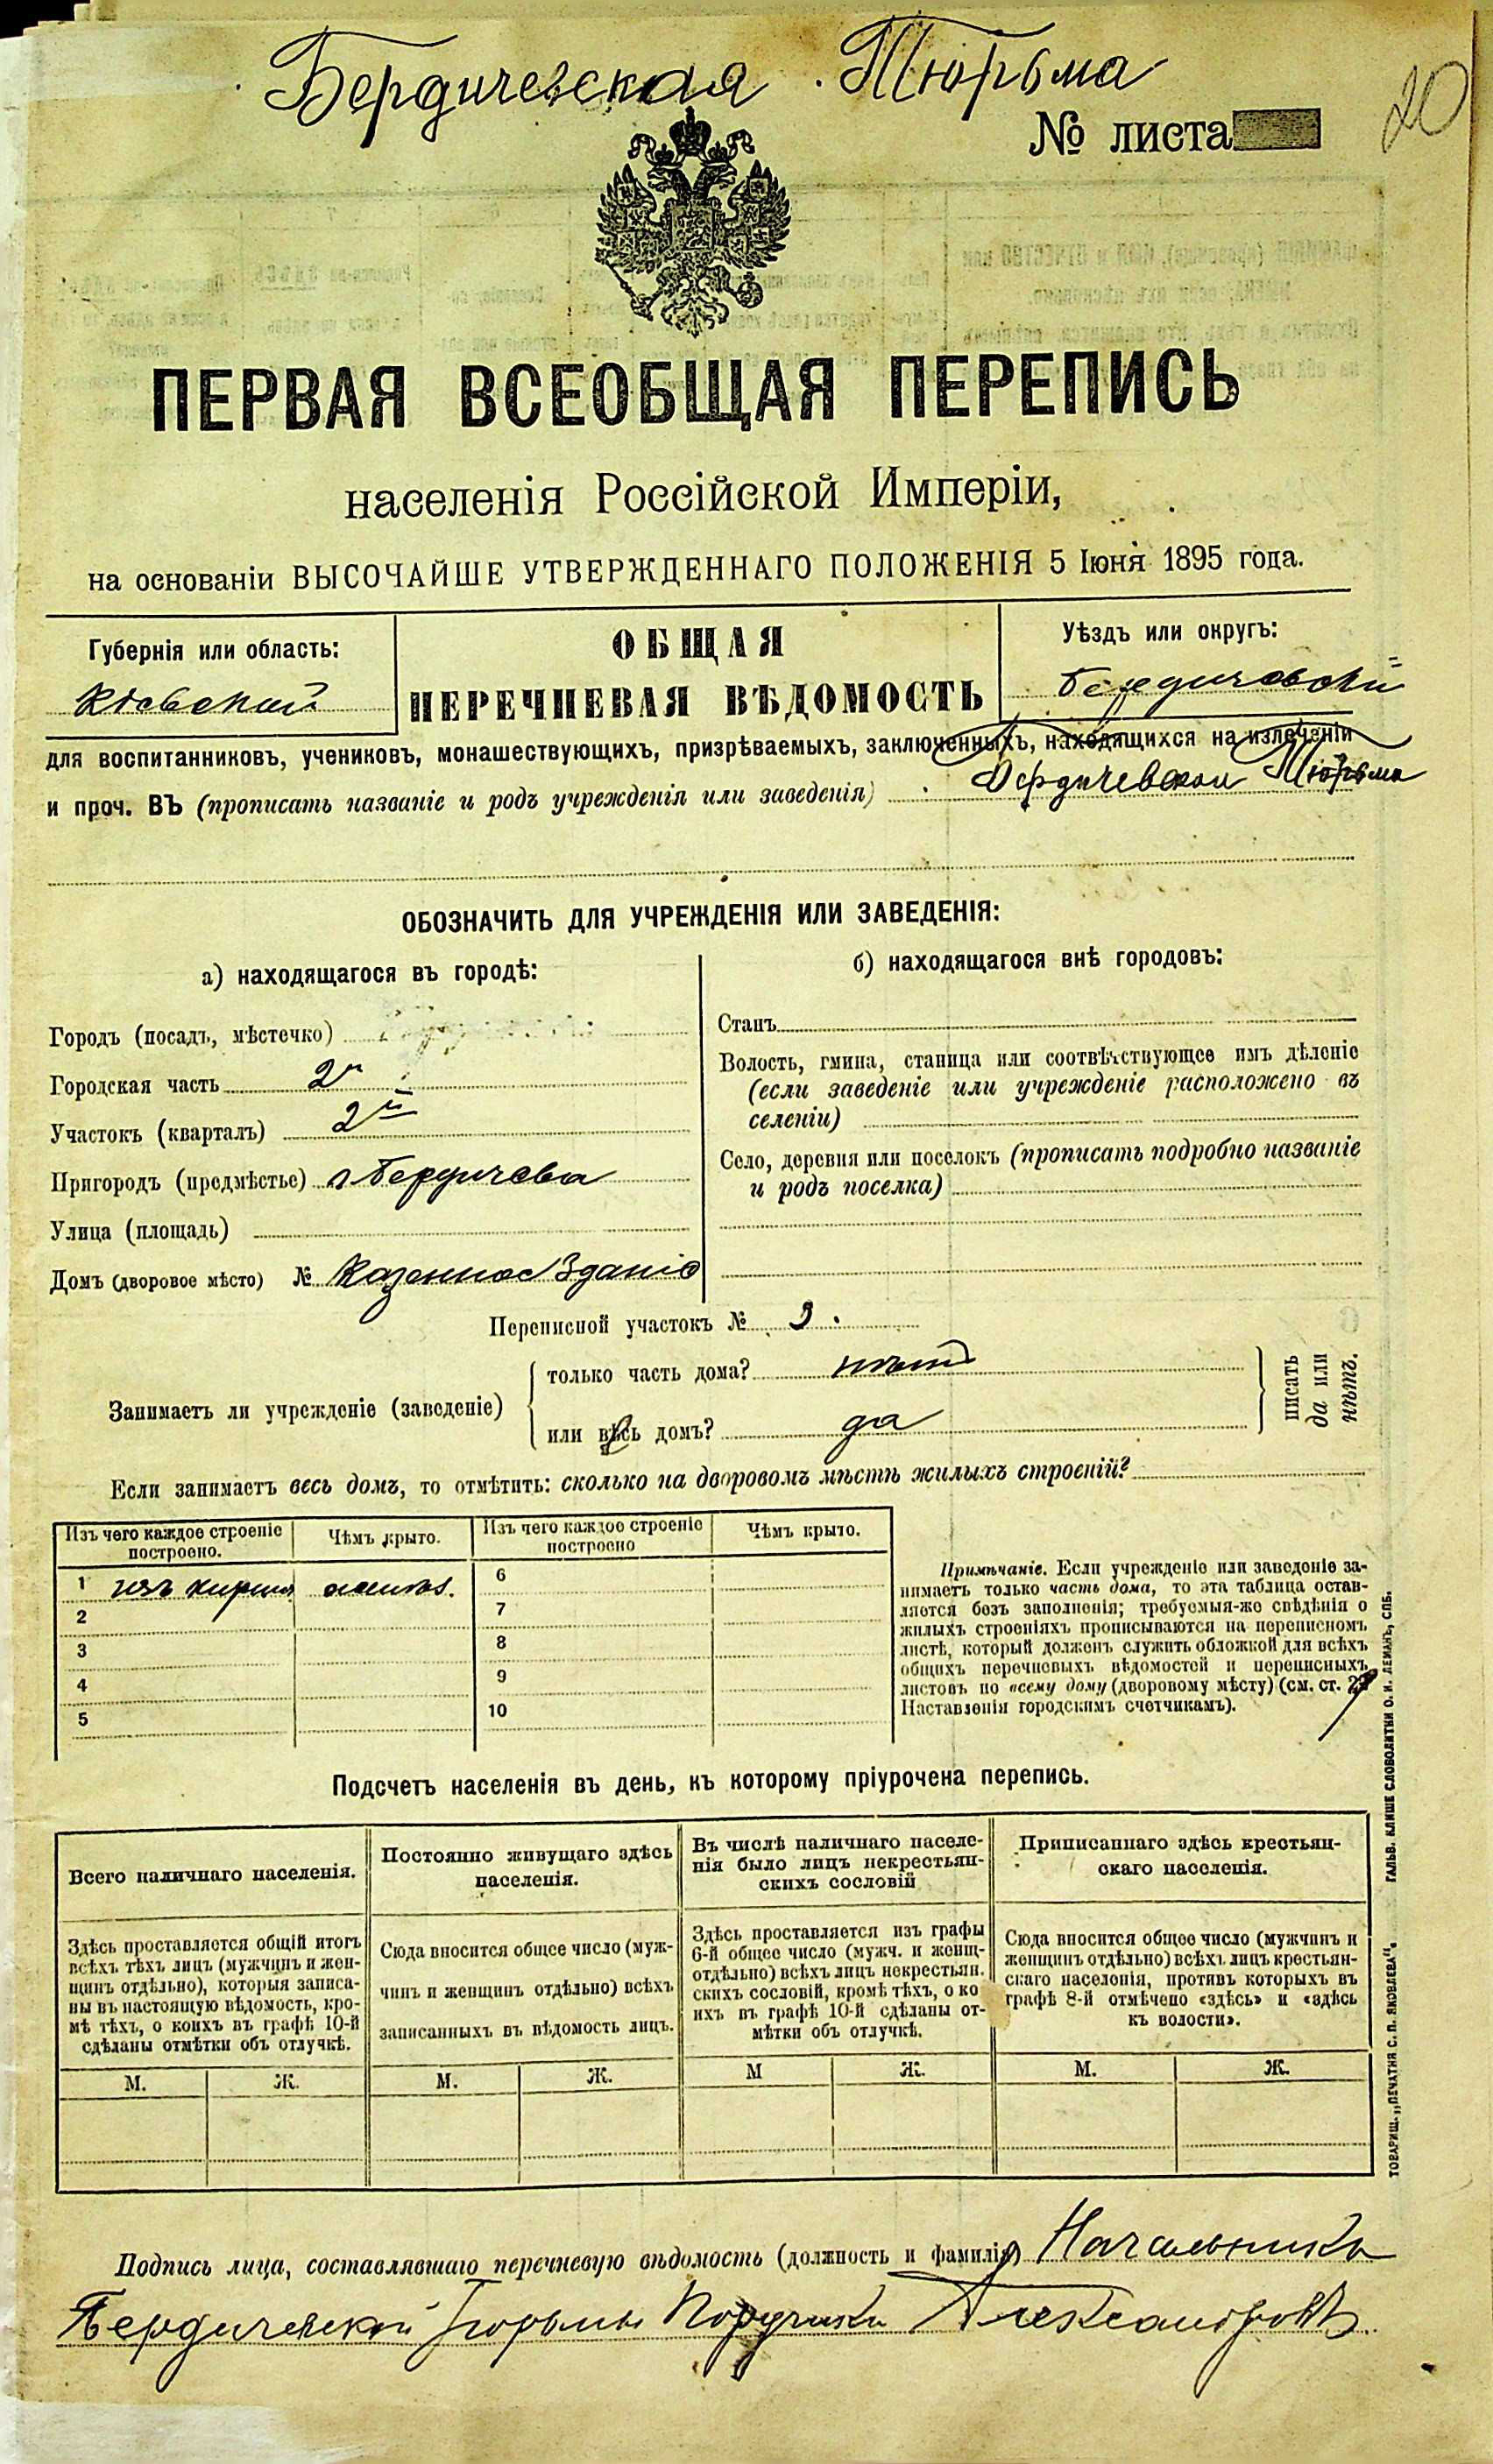 Бердичевская Тюрьма
20
№ листа
ПЕРВАЯ ВСЕОБЩАЯ ПЕРЕПИСЬ
населенія Россійской Имперіи,
на основаніи ВЫСОЧАЙШЕ УТВЕРЖДЕННАГО ПОЛОЖЕНІЯ 5 Іюня 1895 года.
Губернія или область:
Кіевской
ОБЩАЯ
ПЕРЕЧНЕВАЯ ВѢДОМОСТЬ
Уѣздъ или округъ:
Бердичевскій
для воспитанниковъ, учениковъ, монашествующихъ, призрѣваемыхъ, заключенныхъ, находящихся на излеченіи
и проч. ВЪ (прописать названіе и родъ учрежденія или заведенія) Бердичевской Тюрьма
ОБОЗНАЧИТЬ ДЛЯ УЧРЕЖДЕНІЯ ИЛИ ЗАВЕДЕНІЯ:
а) находящагося въ городѣ:
Городъ (посадъ, мѣстечко)
Городская часть 2я
Участокъ (кварталъ) 2й
Пригородъ (предмѣстье) г Бердичева
Улица (площадь)
Домъ (дворовое мѣсто) № Казенное Зданіе
б) находящагося внѣ городовъ:
Станъ
Волость, гмина, станица или соотвѣтствующее имъ дѣленіе
(если заведеніе или учрежденіе расположено въ
селеніи)
Село, деревня или поселокъ (прописать подробно названіе
и родъ поселка)
Переписной участокъ № 3.
Занимаетъ ли учрежденіе (заведеніе)
только часть дома? нѣтъ
или весь домъ? да
писать
да или
нѣтъ.
Если занимаетъ весь домъ, то отмѣтить: сколько на дворовомъ мѣстѣ жилыхъ строеній?
Изъ чего каждое строеніе
построено.
Чѣмъ крыто.
Изъ чего каждое строеніе
построено
Чѣмъ крыто.
1 изъ кирпич
2
3
4
5
6
7
8
9
10
Примѣчаніе. Если учрежденіе или заведеніе за-
нимаетъ только часть дома, то эта таблица остав-
ляется безъ заполненія; требуемыя-же свѣдѣнія о
жилыхъ строеніяхъ прописываются на переписномъ
листѣ, который долженъ служить обложкой для всѣхъ
общихъ перечневыхъ вѣдомостей и переписныхъ
листовъ по всему дому (дворовому мѣсту) (см. ст.
Наставленія городскимъ счетчикамъ).
Подсчетъ населенія въ день, къ которому пріурочена перепись.
Всего наличнаго населенія.
Здѣсь проставляется общій итогъ
всѣхъ тѣхъ лицъ (мужчинъ и жен-
щинъ отдѣльно), которыя записа-
ны въ настоящую вѣдомость, кро-
мѣ тѣхъ, о коихъ въ графѣ 10-й
сдѣланы отмѣтки объ отлучкѣ.
М. Ж.
Постоянно живущаго здѣсь
населенія.
Сюда вносится общее число (муж-
чинъ и женщинъ отдѣльно) всѣхъ
записанныхъ въ вѣдомость лицъ.
М. Ж.
Въ числѣ наличнаго населе-
нія было лицъ некрестьян-
скихъ сословій
Здѣсь проставляется изъ графы
6-й общее число (мужч. и женщ.
отдѣльно) всѣхъ лицъ некрестьян-
скихъ сословій, кромѣ тѣхъ, о ко
ихъ въ графѣ 10-й сдѣланы от-
мѣтки объ отлучкѣ.
М Ж.
Приписаннаго здѣсь крестьян-
скаго населенія.
Сюда вносится общее число (мужчинъ и
женщинъ отдѣльно) всѣхъ лицъ крестьян-
скаго населенія, противъ которыхъ въ
графѣ 8-й отмѣчено «здѣсь» и «здѣсь
къ волости».
М. Ж.
ТОВАРИЩ. „ПЕЧАТНЯ С. П. ЯКОВЛЕВА“. ГАЛЬВ. КЛИШЕ СЛОВОЛИТНИ О. И. ЛЕМАНЪ, СПБ.
Подпись лица, составлявшаго перечневую вѣдомость (должность и фамилія) Начальникъ
Бердичевской Тюрьмы Поручикъ Александровъ.